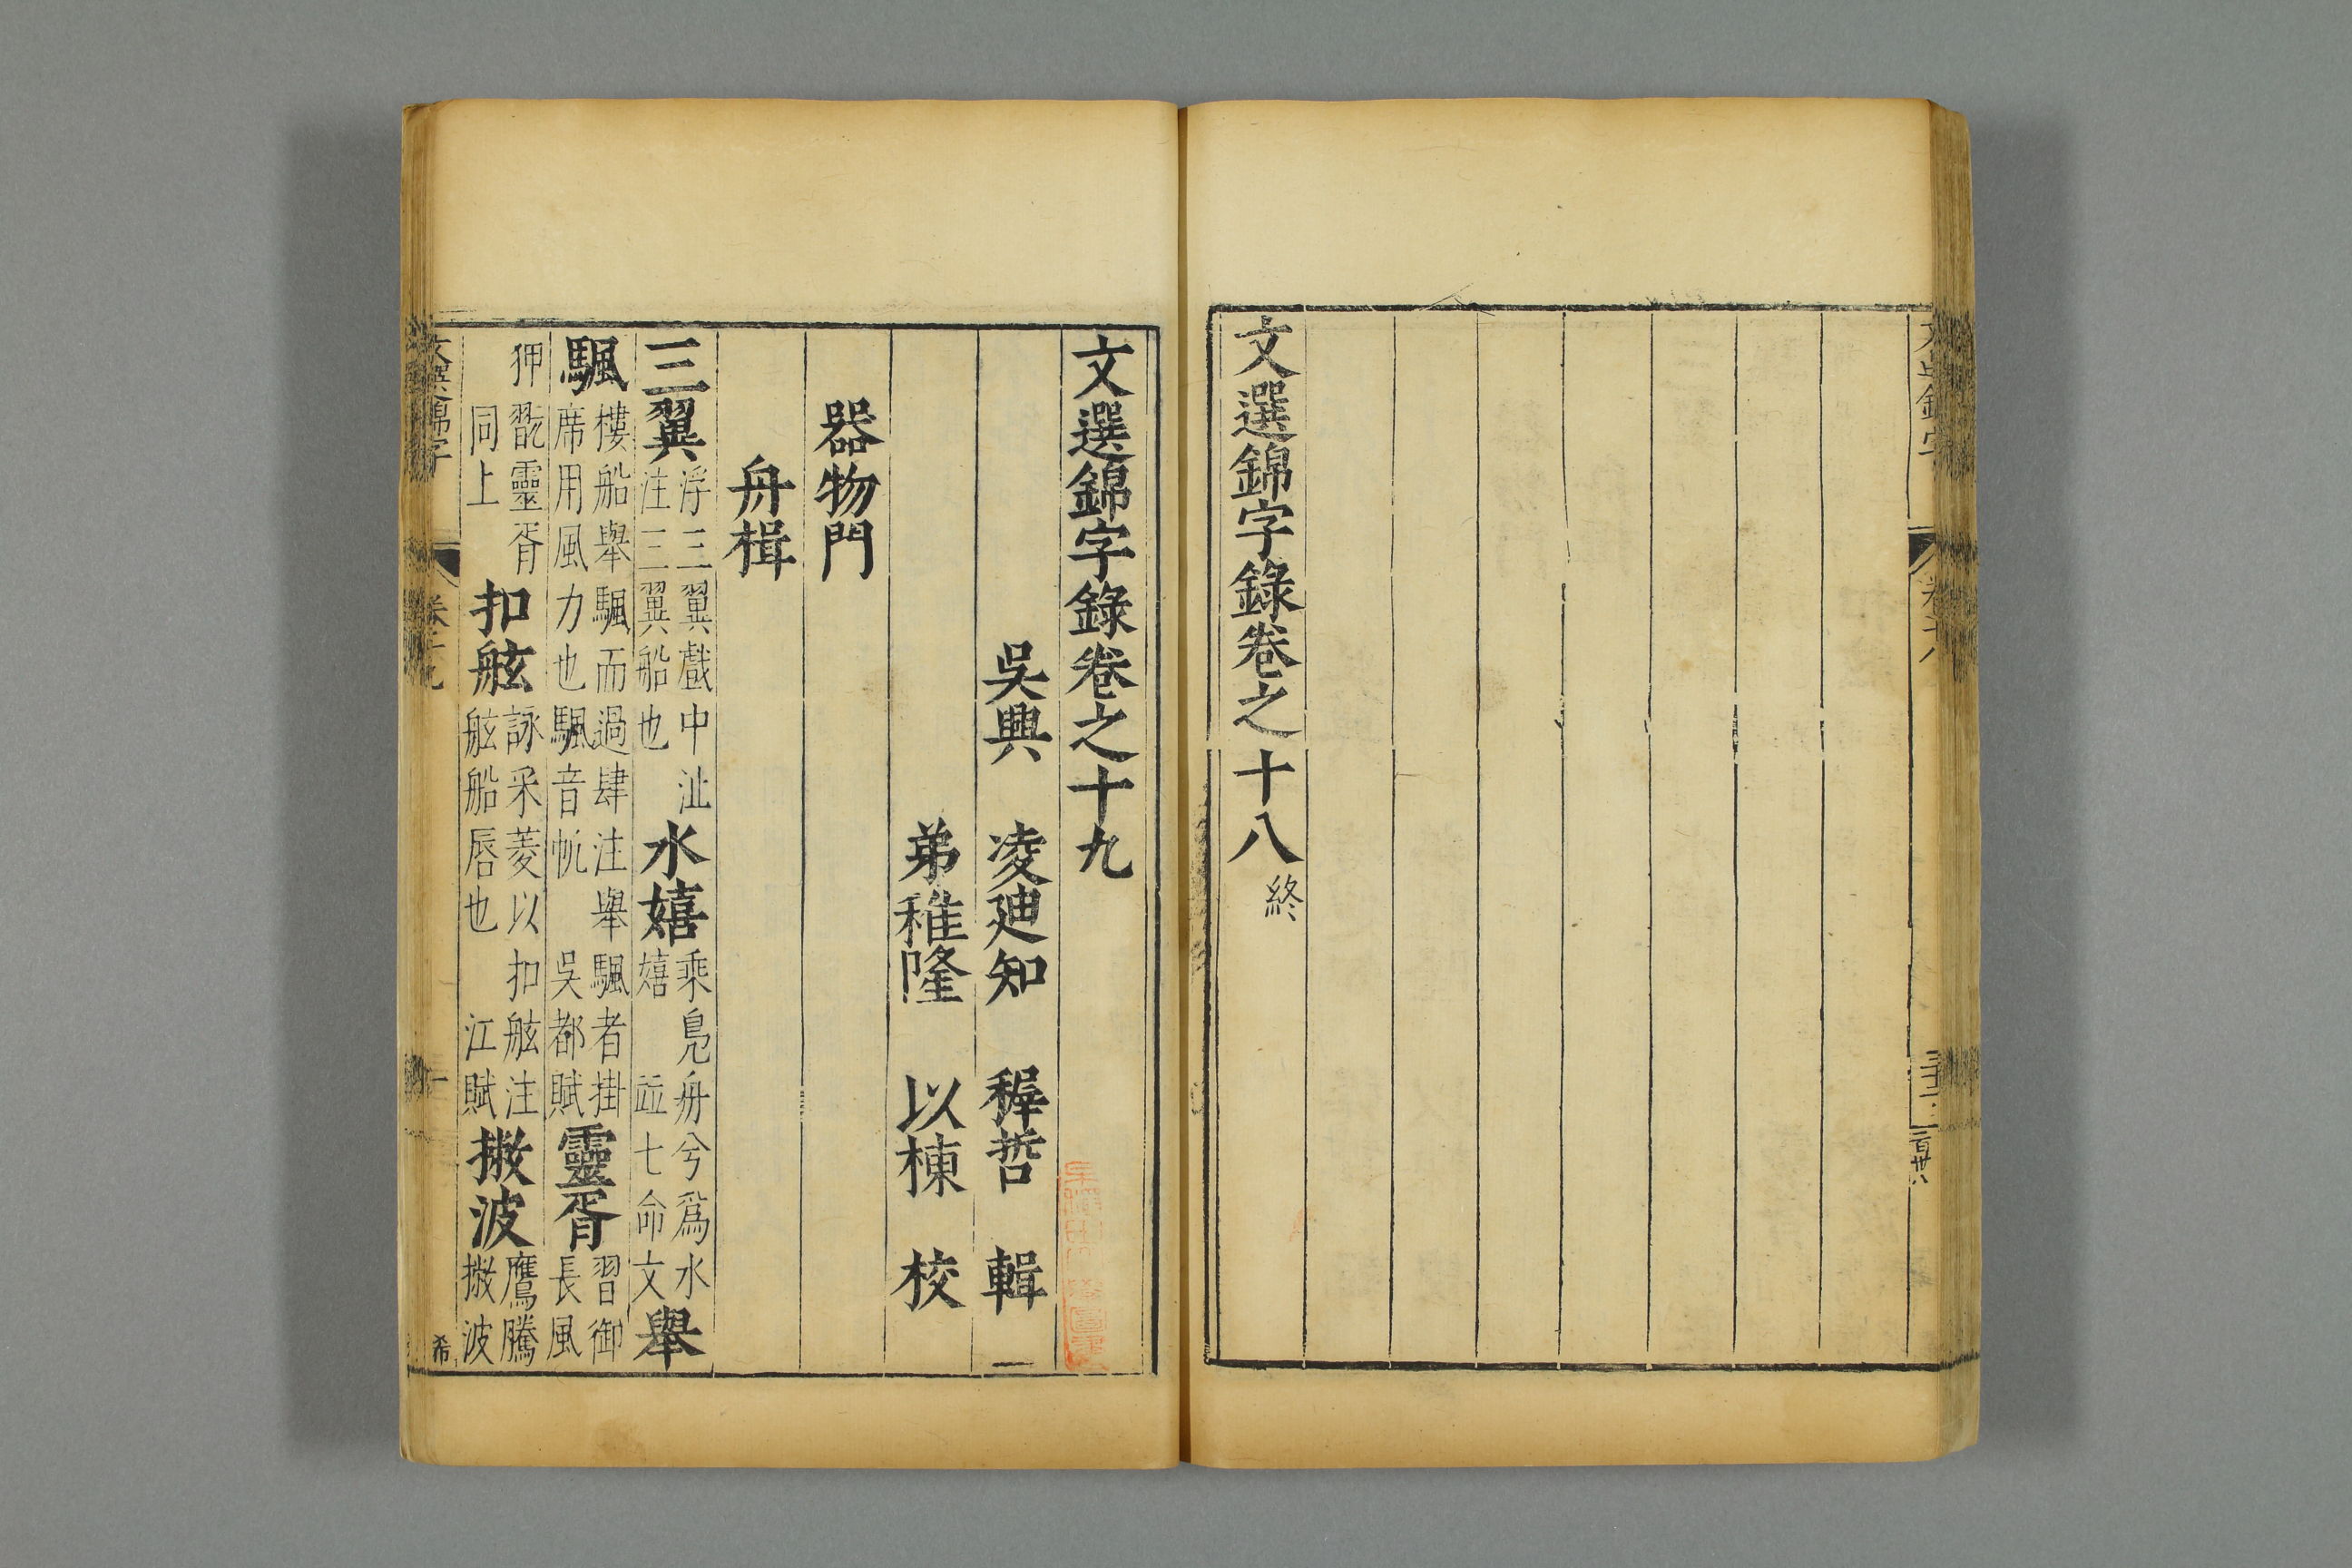 文選錦字錄卷之十八 終
文選錦字錄卷之十九
吳興 凌迪知 穉哲 輯
弟稚隆 以棟 校
器物門
舟楫
三翼 浮三翼戲中沚 注三翼船也 水嬉 乘鳧舟兮爲水嬉 並七命文 舉
颿 樓船舉颿而過肆注舉颿者掛席用風力也颿音帆 吳都賦 靈胥 習御長風
狎翫靈胥 同上 扣舷 詠采菱以扣舷注舷船唇也 江賦 撇波 鷹騰撇波
文選錦字 卷十九 一 希